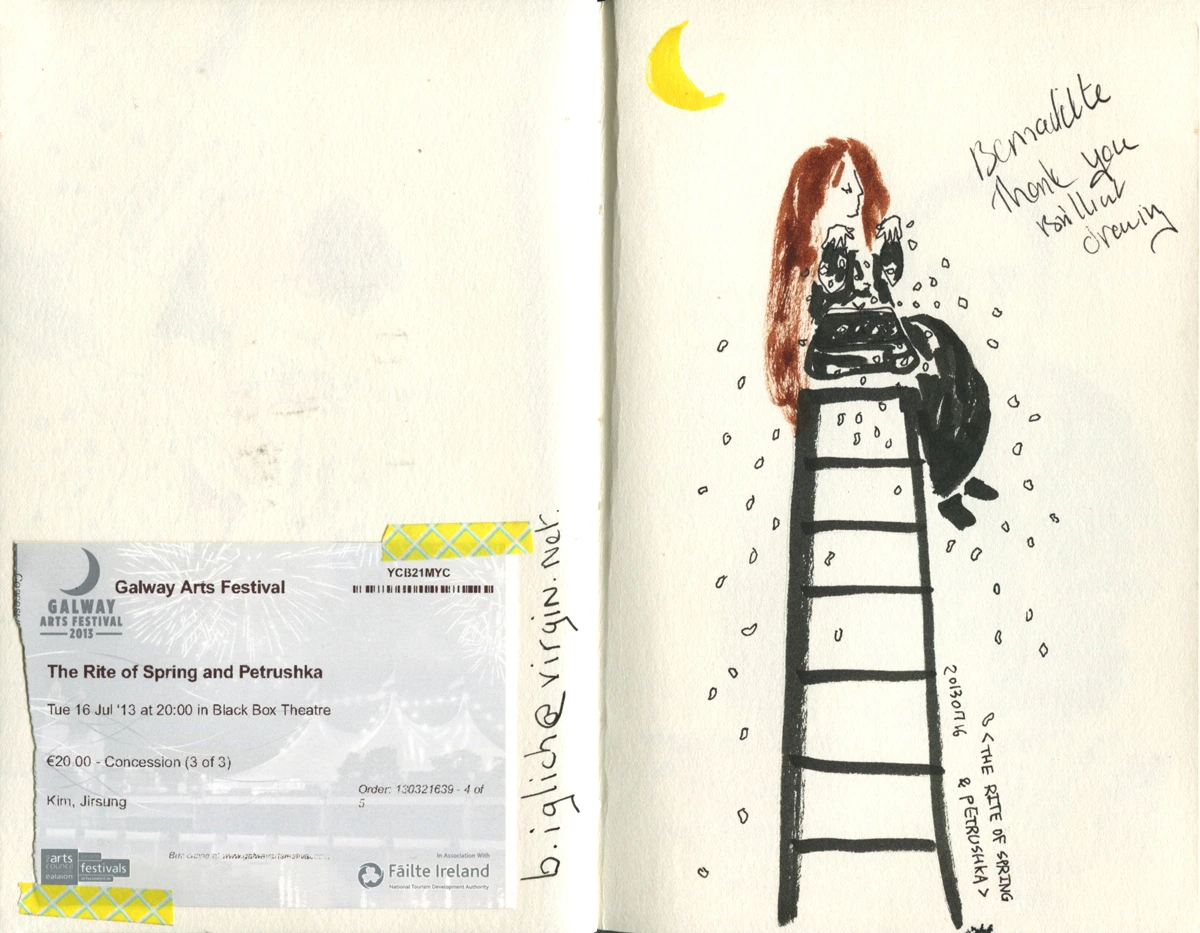 YCB21MYC
Galway Arts Festival
GALWAY
ARTS FESTIVAL
2013
The Rite of Spring and Petrushka
Tue 16 Jul '13 at 20:00 in Black Box Theatre
€20.00 - Concession (3 of 3)
Order: 130321639 - 4 of
5
Kim, Jirsung
arts
council
ealaíon
festivals
In Association With
Fáilte Ireland
National Tourism Development Authority
b.iglich@virgin.net.
Bernadette
Thank you
Brilliant
drawing
20130716
<THE RITE OF SPRING
& PETRUSHKA>